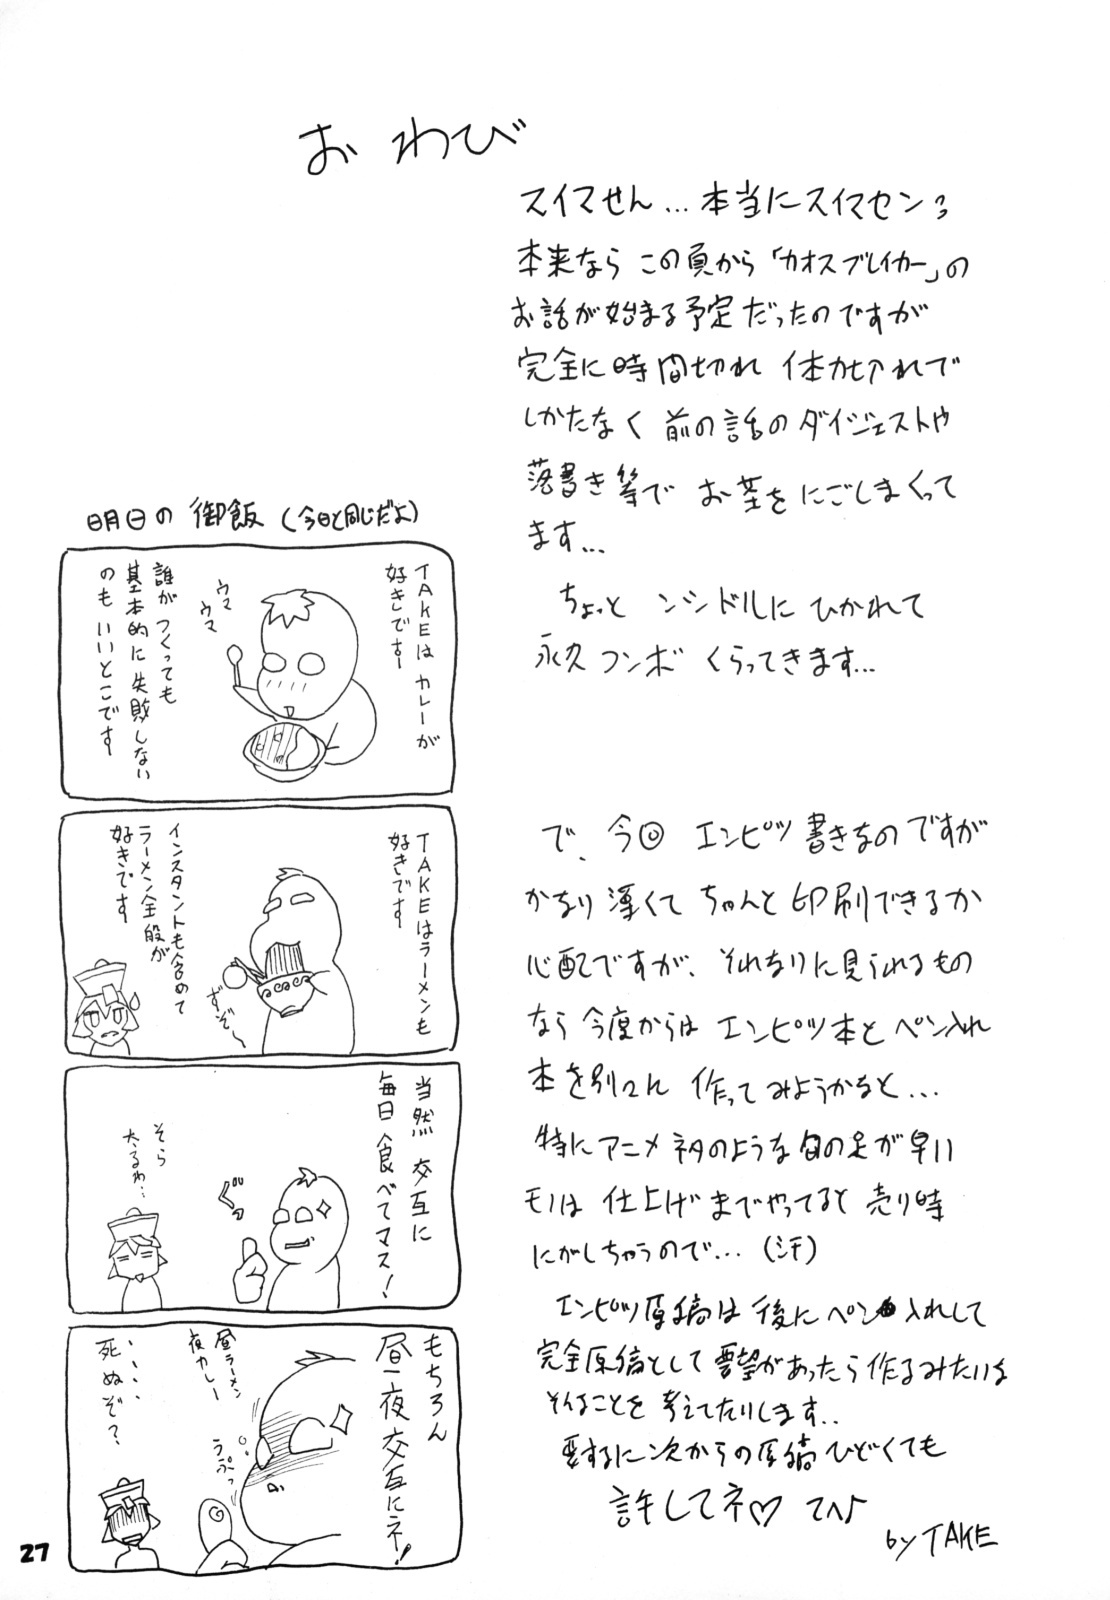 おわび
スイマせん…本当にスイマセン
本来なら この頁から「カオスブレイカー」の
お話が始まる予定だったのですが
完全に時間切れ 体力切れで
しかたなく 前の話のダイジェストや
落書き等で お茎をにごしまくって
ます…
ちょっと ンシドルに ひかれて
永久コンボ くらってきます…
で、今回 エンピツ書きなのですが
かなり薄くて ちゃんと印刷できるか
心配ですが、それなりに見られるもの
なら 今度からは エンピツ本と ペン入れ
本を別々に 作ってみようかなと…
特にアニメネタのような旬の足が早い
モノは 仕上げまでやってると 売り時
にがしちゃうので…(汗)
エンピツ原稿は 後にペン入れして
完全原稿として 要望があったら作るみたいな
そんなことを 考えてたりします..
要するに次からの原稿ひどくても
許してネ♡ てへ♪
by TAKE
明日の 御飯 (今日と同じだよ)
TAKEは カレーが
好きです
ウマ
ウマ
誰が つくっても
基本的に 失敗しない
のも いいとこです
TAKEはラーメンも
好きです
ずぞ〜
インスタントも含めて
ラーメン全般が
好きです
当然 交互に
毎日 食べてマス!
ぐっ
そら
太るわ…
もちろん
昼夜交互にネ!
昼ラーメン
夜カレー
うぷっ
・・・・
死ぬぞ?
27